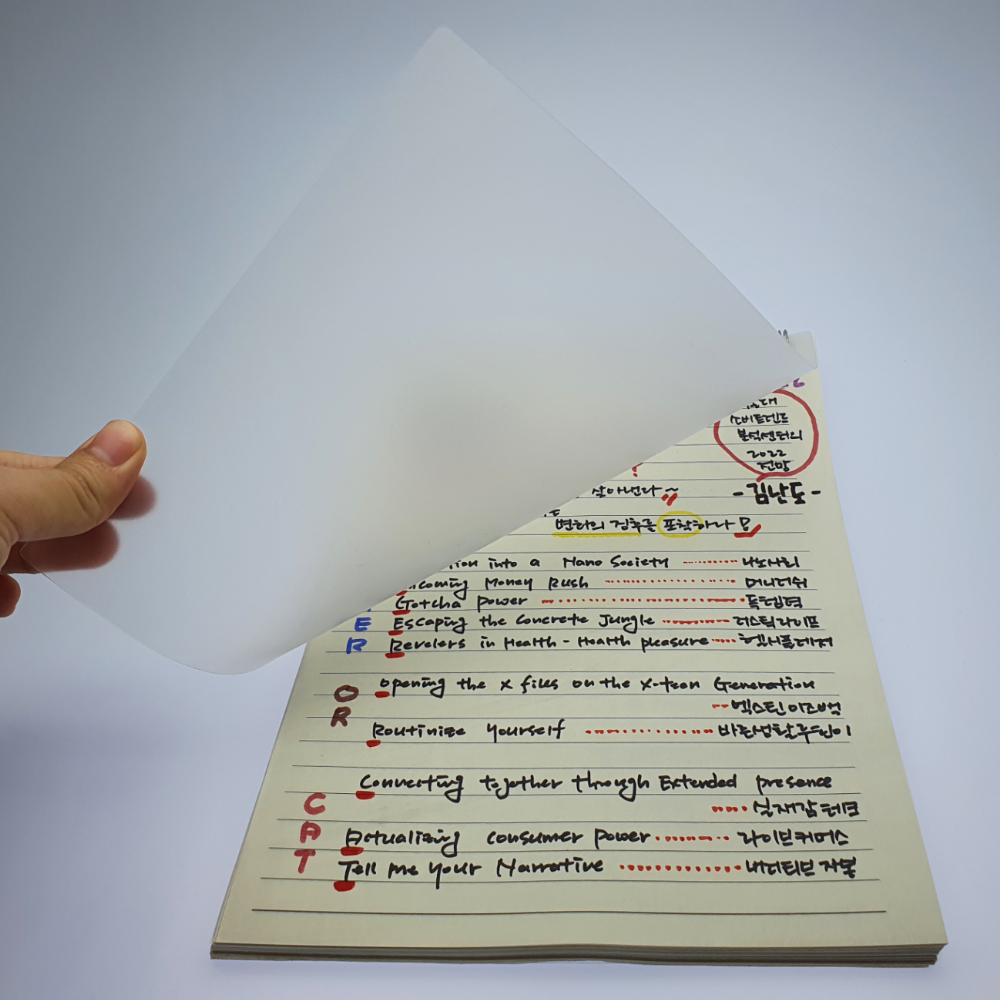 소비트렌드
분석센터의
2022
전망
살아낸다~
-김난도-
변화의 징후를 포착하라
into a Nano Society ········ 나노사회
Incoming Money Rush ············ 머니러쉬
Gotcha Power ················ 득템력
E Escaping the Concrete Jungle ········ 러스틱라이프
R Revelers in Health - Health pleasure ···· 헬시플레저
O Opening the X files on the X-teen Generation
-- 엑스틴 이즈백
R Routinize Yourself ·········· 바른생활루틴이
C Connecting together through Extended presence
···· 실재감테크
A Actualizing consumer power ········ 라이브커머스
T Tell me your Narrative ············ 내러티브 자본